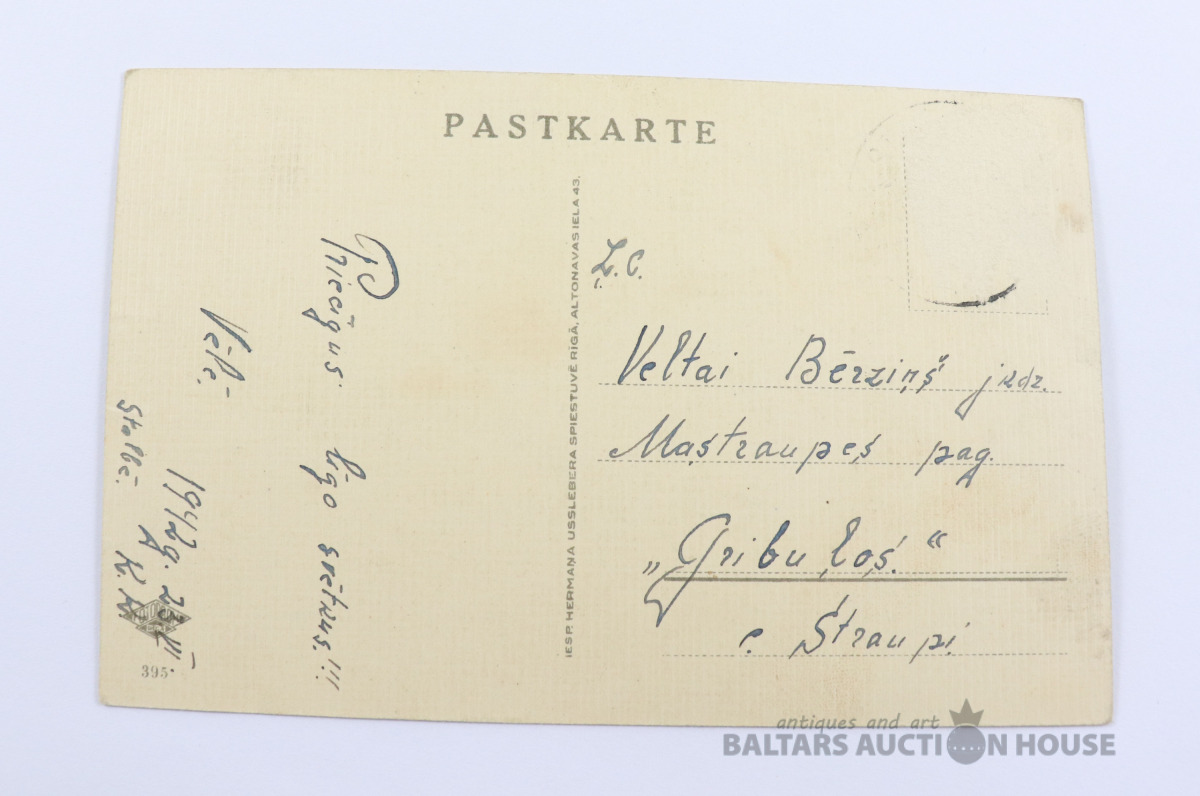 PASTKARTE
Priecīgus
Līgo svētkus!!!
Vēlē.
Stalbē.
IESP. HERMAŅA USSLEBERA SPIESTUVĒ RĪGĀ, ALTONAVAS IELA 43.
Ļ. C.
Veltai Bērziņš jkdz.
Mazstraupes pag.
„Gribuļos.“
c. Straupi
395
antiques and art
BALTARS AUCTION HOUSE